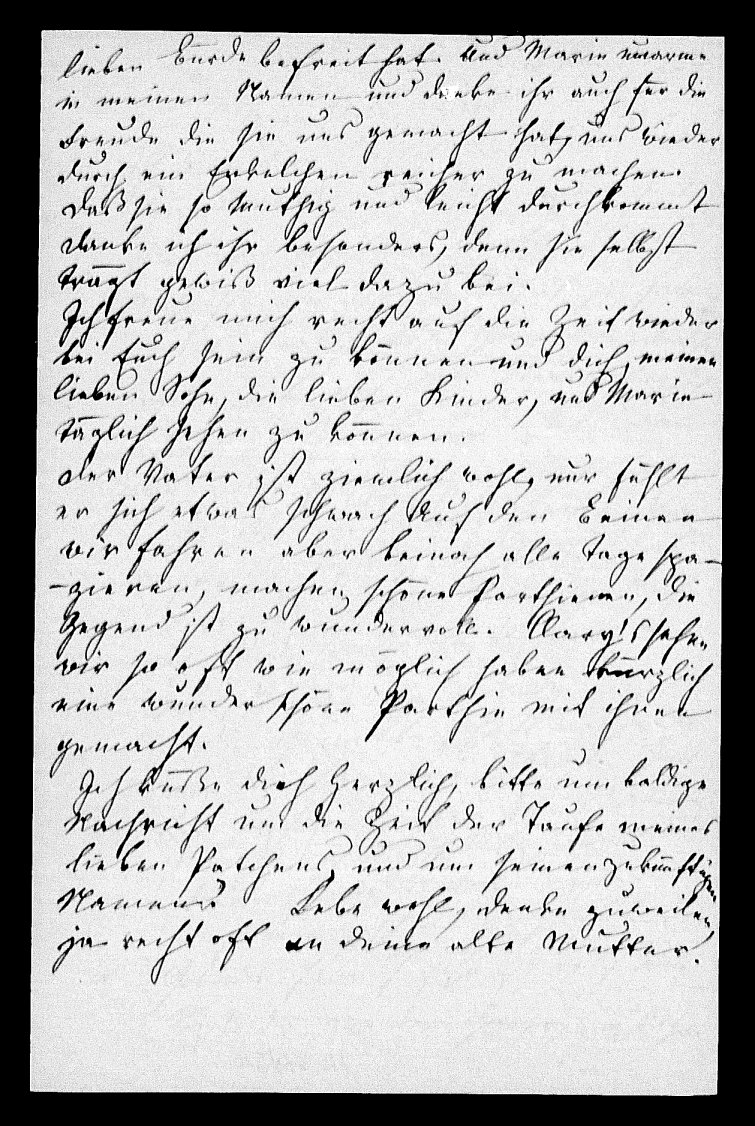 lieben Bürde befreit hat. Und Marie umarme
in meinen Namen und danke ihr auch für die
Freude die sie uns gemacht hat, uns wieder
durch ein Enkelchen reicher zu machen.
Daß sie so muthig und leicht durchkommt
danke ich ihr besonders, denn sie selbst
trägt gewiß viel dazu bei.
Ich freue mich recht auf die Zeit wieder
bei Euch sein zu können und dich, meinen
lieben Sohn, die lieben Kinder, und Marie
täglich sehen zu können.
Der Vater ist ziemlich wohl, nur fühlt
er sich etwas schwach auf den Beinen
wir fahren aber beinah alle Tage spa-
-zieren, machen schöne Parthieen, die
Gegend ist zu wundervoll. Clary's sehen
wir so oft wie möglich haben kürzlich
eine wunderschöne Parthie mit ihnen
gemacht.
Ich küße dich herzlich, bitte um baldige
Nachricht um die Zeit der Taufe meines
lieben Patchens, und um seinen zukünftigen
Namen? Lebe wohl, denke zuweilen,
ja recht oft an deine alte Mutter.